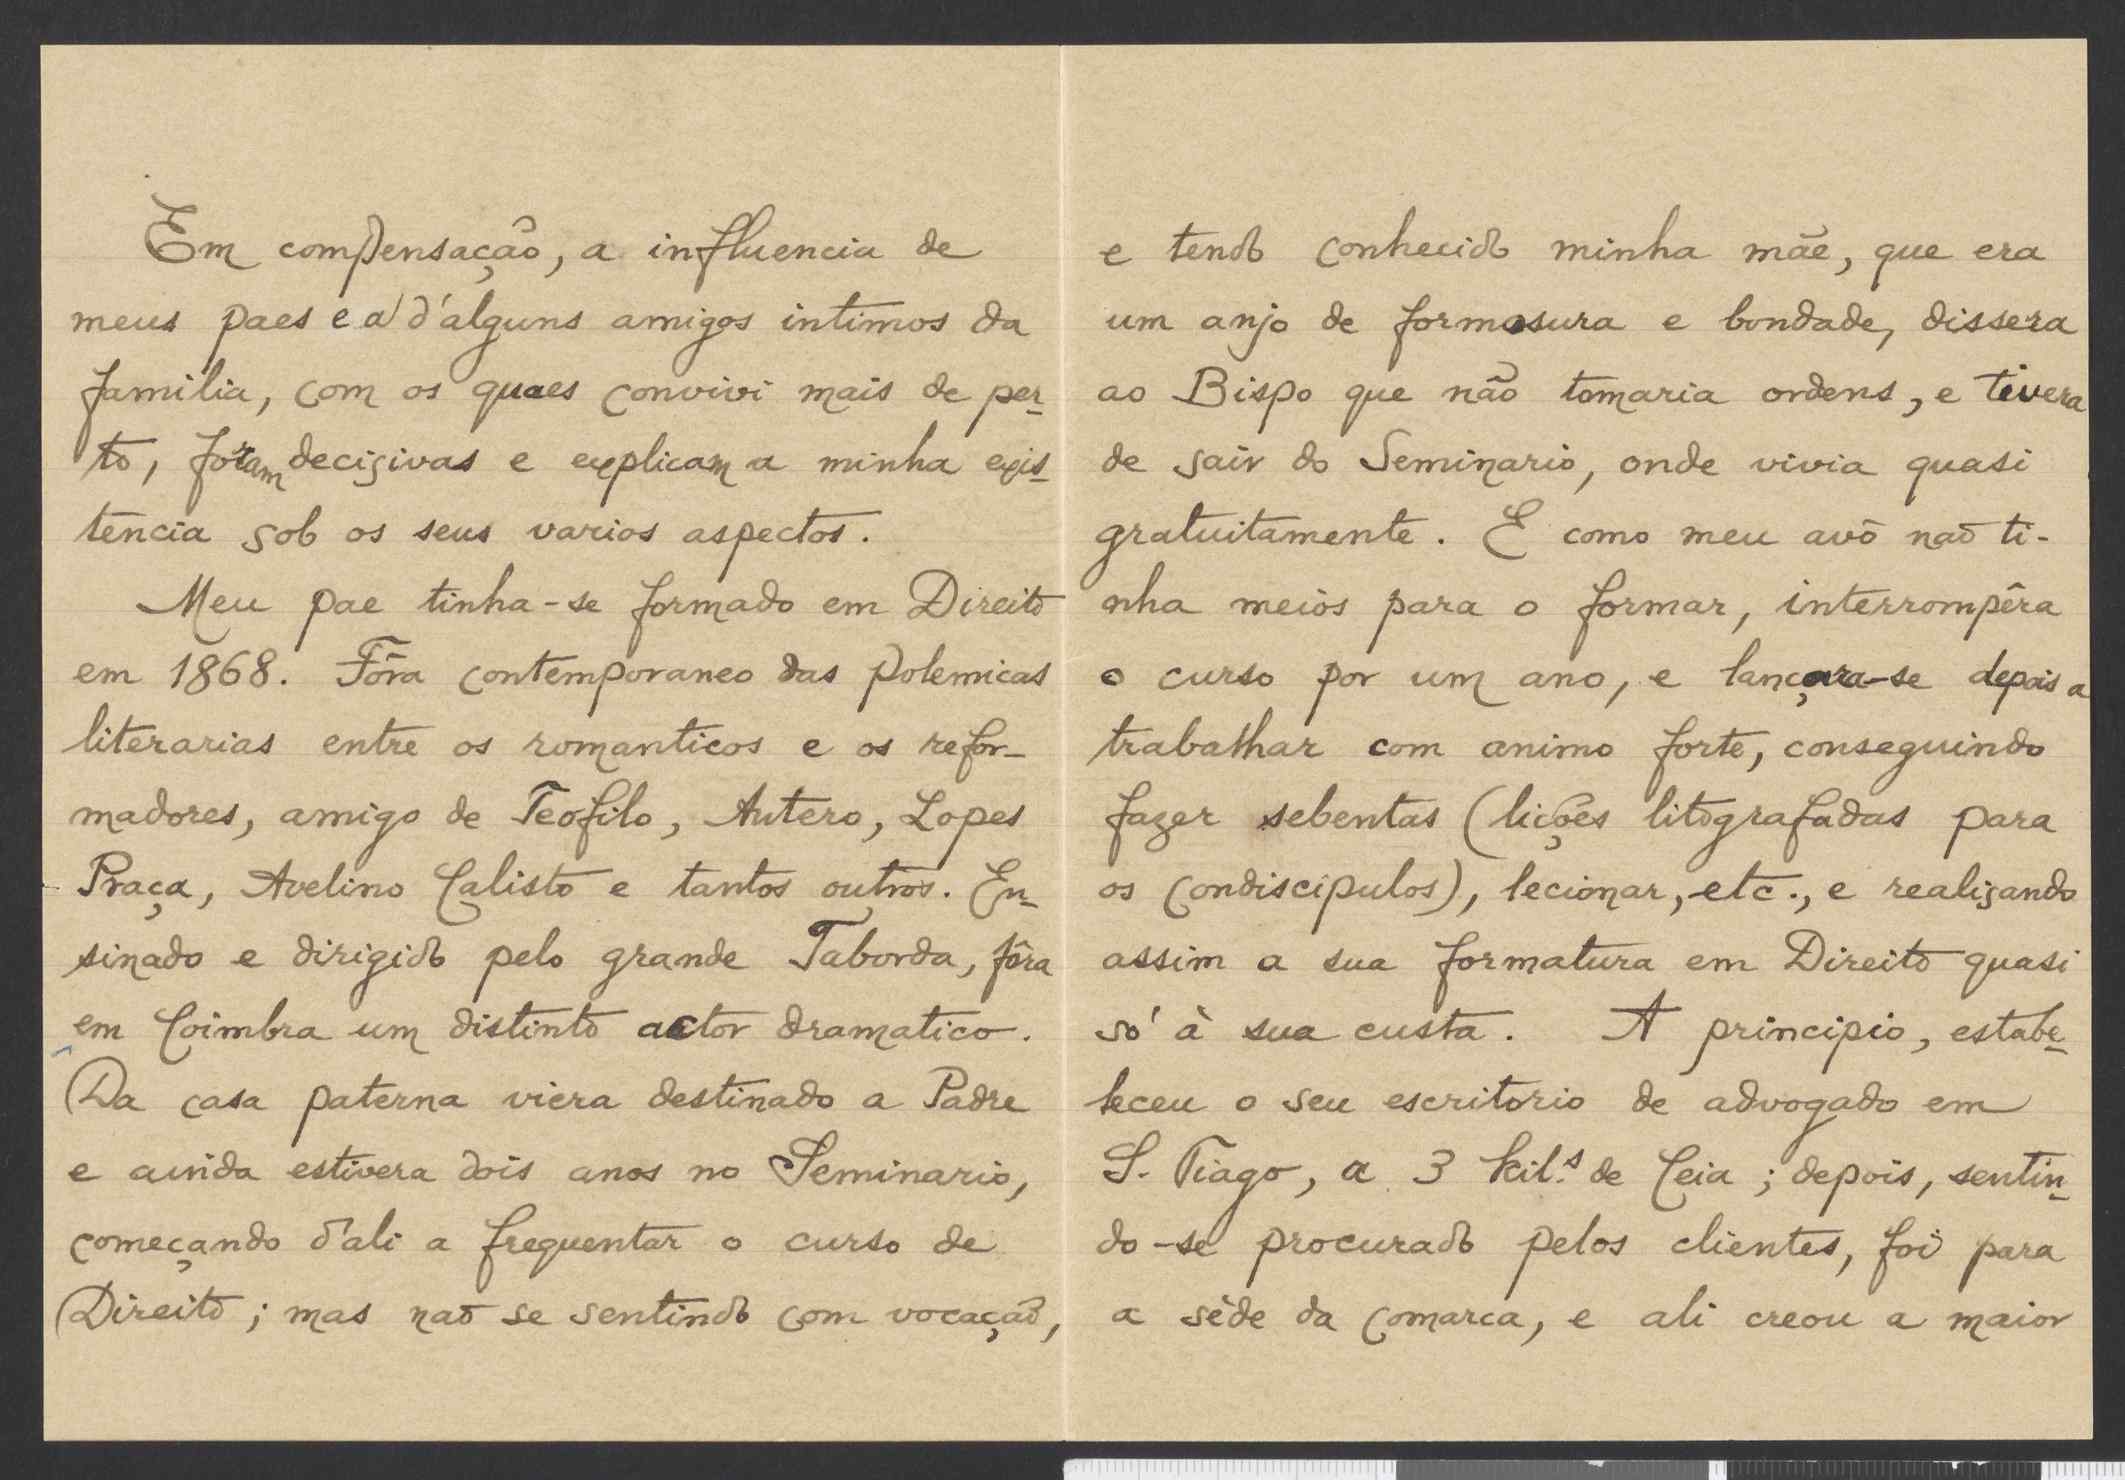 Em compensação, a influencia de
meus paes e a d'alguns amigos intimos da
familia, com os quaes convivi mais de per-
to, foram decisivas e explicam a minha exis-
tencia sob os seus varios aspectos.
Meu pae tinha-se formado em Direito
em 1868. Fôra contemporaneo das polemicas
literarias entre os romanticos e os refor-
madores, amigo de Teofilo, Antero, Lopes
Praça, Avelino Calisto e tantos outros. En-
sinado e dirigido pelo grande Taborda, fôra
em Coimbra um distinto actor dramatico.
Da casa paterna viera destinado a Padre
e ainda estivera dois anos no Seminario,
começando d'ali a frequentar o curso de
Direito; mas não se sentindo com vocação,
e tendo conhecido minha mãe, que era
um anjo de formosura e bondade, dissera
ao Bispo que não tomaria ordens, e tivera
de sair do Seminario, onde vivia quasi
gratuitamente. E como meu avô não ti-
nha meios para o formar, interrompêra
o curso por um ano, e lançara-se depois a
trabalhar com animo forte, conseguindo
fazer sebentas (lições litografadas para
os condiscipulos), lecionar, etc., e realisando
assim a sua formatura em Direito quasi
só à sua custa. A principio, estabe-
leceu o seu escritorio de advogado em
S. Tiago, a 3 kil.s de Ceia; depois, sentin-
do-se procurado pelos clientes, foi para
a séde da comarca, e ali creou a maior